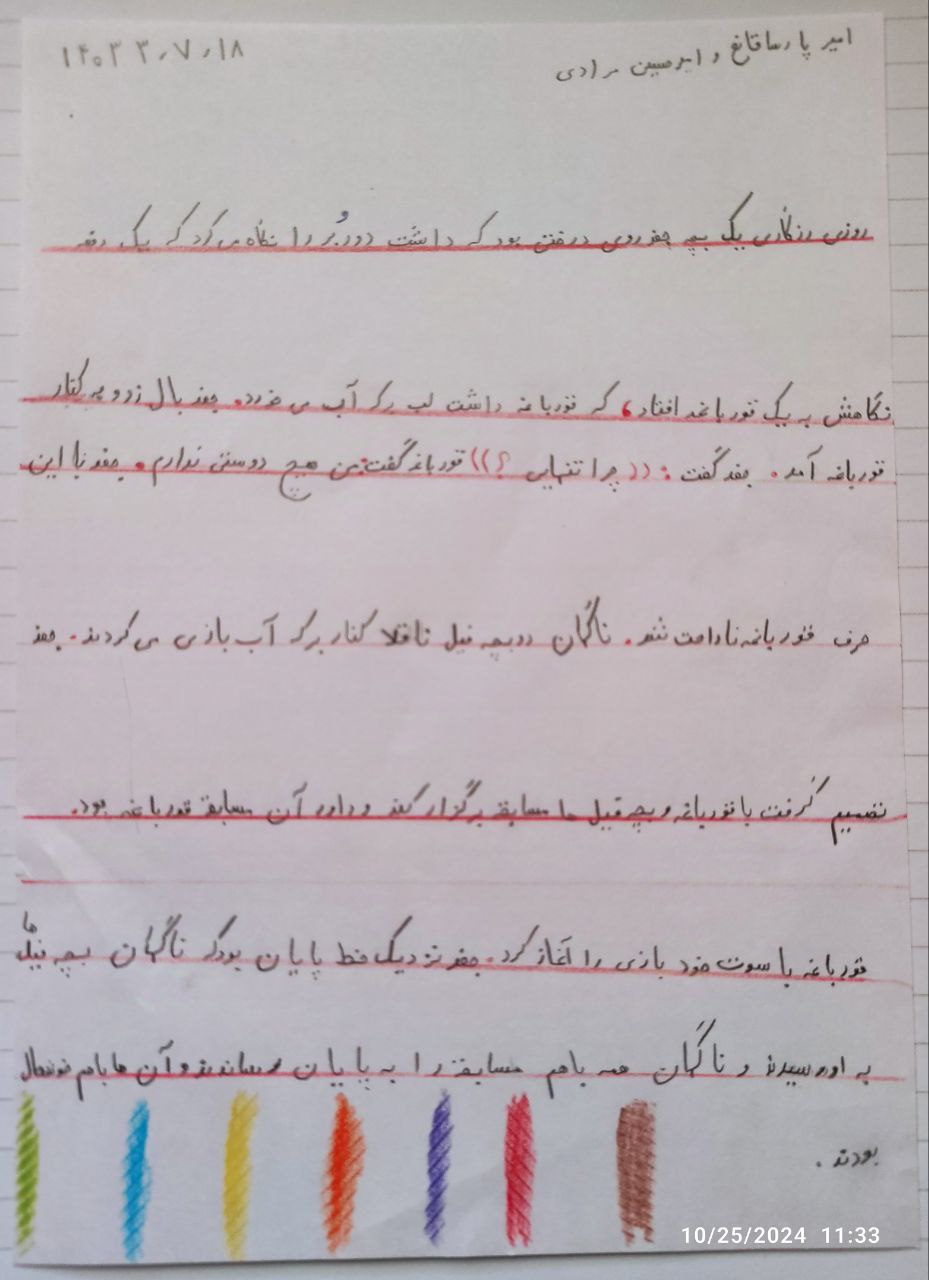 امیر پارسا قانع و امیرحسین مرادی
۱۴۰۳ ۳٫۷٫۱۸
روزی رزگاری یک بچه جغد روی درختی بود که داشت دوربُر را نگاه می کرد که یک دفعه
نگاهش به یک قورباغه افتاد، که قورباغه داشت لب برکه آب می خورد. جغد بال زد و به کنار
قورباغه آمد. جغد گفت : (( چرا تنهایی ؟)) قورباغه گفت: من هیچ دوستی ندارم. جغد با این
حرف قورباغه ناراحت شد. ناگهان دو بچه فیل ناقلا کنار برکه آب بازی می کردند. جغد
تصمیم گرفت با قورباغه و بچه فیل ها مسابقه برگزار کند و داور آن مسابقه قورباغه بود.
قورباغه با سوت خود بازی را آغاز کرد. جغد نزدیک خط پایان بود که ناگهان بچه فیل ها
به او رسیدند و ناگهان همه باهم مسابقه را به پایان رساندند و آن ها باهم خوشحال
بودند .
10/25/2024 11:33